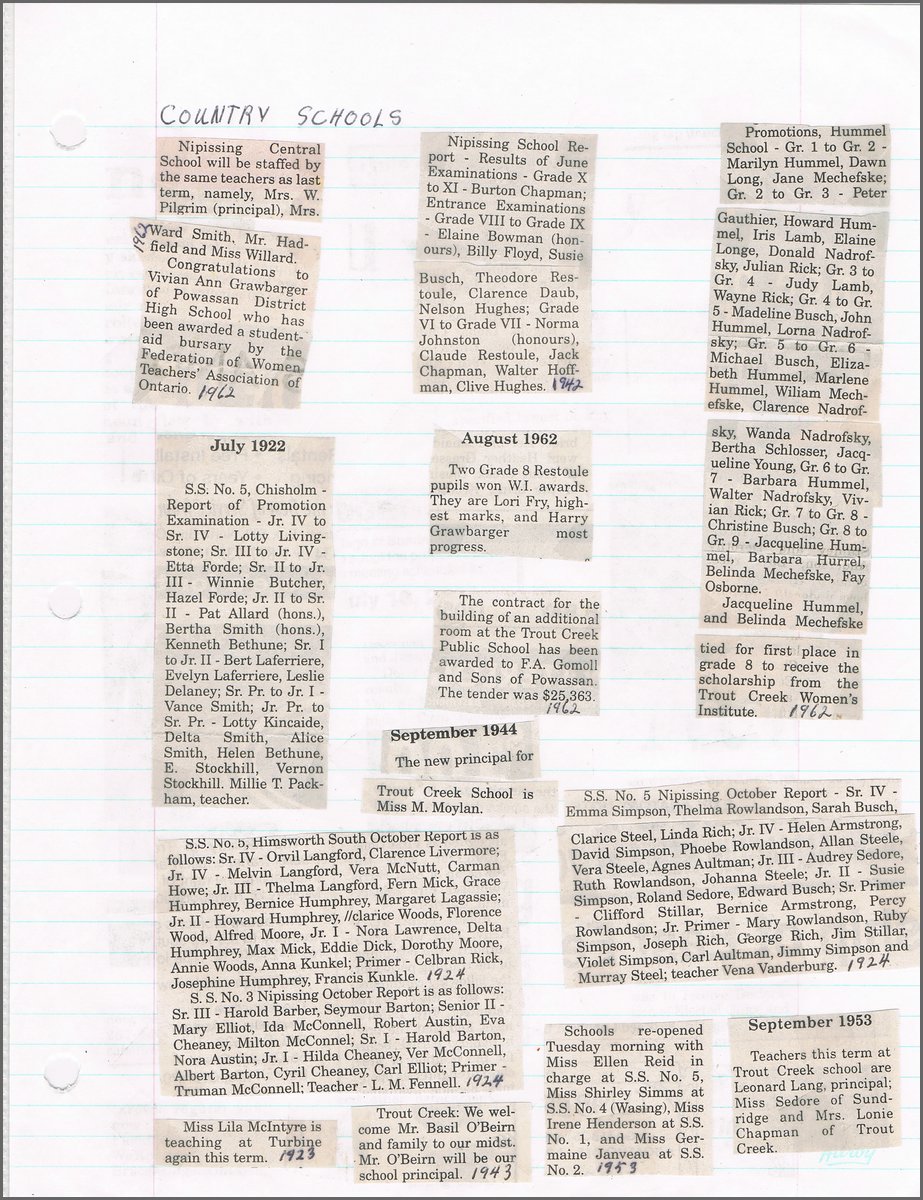 COUNTRY SCHOOLS
Nipissing Central
School will be staffed by
the same teachers as last
term, namely, Mrs. W.
Pilgrim (principal), Mrs.
1962
Ward Smith, Mr. Had-
field and Miss Willard.
Congratulations to
Vivian Ann Grawbarger
of Powassan District
High School who has
been awarded a student-
aid bursary by the
Federation of Women
Teachers' Association of
Ontario. 1962
Nipissing School Re-
port - Results of June
Examinations - Grade X
to XI - Burton Chapman;
Entrance Examinations
- Grade VIII to Grade IX
- Elaine Bowman (hon-
ours), Billy Floyd, Susie
Busch, Theodore Res-
toule, Clarence Daub,
Nelson Hughes; Grade
VI to Grade VII - Norma
Johnston (honours),
Claude Restoule, Jack
Chapman, Walter Hoff-
man, Clive Hughes. 1942
Promotions, Hummel
School - Gr. 1 to Gr. 2 -
Marilyn Hummel, Dawn
Long, Jane Mechefske;
Gr. 2 to Gr. 3 - Peter
Gauthier, Howard Hum-
mel, Iris Lamb, Elaine
Longe, Donald Nadrof-
sky, Julian Rick; Gr. 3 to
Gr. 4 - Judy Lamb,
Wayne Rick; Gr. 4 to Gr.
5 - Madeline Busch, John
Hummel, Lorna Nadrof-
sky; Gr. 5 to Gr. 6 -
Michael Busch, Eliza-
beth Hummel, Marlene
Hummel, Wiliam Mech-
efske, Clarence Nadrof-
sky, Wanda Nadrofsky,
Bertha Schlosser, Jacq-
ueline Young, Gr. 6 to Gr.
7 - Barbara Hummel,
Walter Nadrofsky, Viv-
ian Rick; Gr. 7 to Gr. 8 -
Christine Busch; Gr. 8 to
Gr. 9 - Jacqueline Hum-
mel, Barbara Hurrel,
Belinda Mechefske, Fay
Osborne.
Jacqueline Hummel,
and Belinda Mechefske
tied for first place in
grade 8 to receive the
scholarship from the
Trout Creek Women's
Institute. 1962
July 1922
S.S. No. 5, Chisholm -
Report of Promotion
Examination - Jr. IV to
Sr. IV - Lotty Living-
stone; Sr. III to Jr. IV -
Etta Forde; Sr. II to Jr.
III - Winnie Butcher,
Hazel Forde; Jr. II to Sr.
II - Pat Allard (hons.),
Bertha Smith (hons.),
Kenneth Bethune; Sr. I
to Jr. II - Bert Laferriere,
Evelyn Laferriere, Leslie
Delaney; Sr. Pr. to Jr. I -
Vance Smith; Jr. Pr. to
Sr. Pr. - Lotty Kincaide,
Delta Smith, Alice
Smith, Helen Bethune,
E. Stockhill, Vernon
Stockhill. Millie T. Pack-
ham, teacher.
August 1962
Two Grade 8 Restoule
pupils won W.I. awards.
They are Lori Fry, high-
est marks, and Harry
Grawbarger most
progress.
The contract for the
building of an additional
room at the Trout Creek
Public School has been
awarded to F.A. Gomoll
and Sons of Powassan.
The tender was $25,363.
1962
September 1944
The new principal for
Trout Creek School is
Miss M. Moylan.
S.S. No. 5, Himsworth South October Report is as
follows: Sr. IV - Orvil Langford, Clarence Livermore;
Jr. IV - Melvin Langford, Vera McNutt, Carman
Howe; Jr. III - Thelma Langford, Fern Mick, Grace
Humphrey, Bernice Humphrey, Margaret Lagassie;
Jr. II - Howard Humphrey, //clarice Woods, Florence
Wood, Alfred Moore, Jr. I - Nora Lawrence, Delta
Humphrey, Max Mick, Eddie Dick, Dorothy Moore,
Annie Woods, Anna Kunkel; Primer - Celbran Rick,
Josephine Humphrey, Francis Kunkle. 1924
S. S. No. 3 Nipissing October Report is as follows:
Sr. III - Harold Barber, Seymour Barton; Senior II -
Mary Elliot, Ida McConnell, Robert Austin, Eva
Cheaney, Milton McConnel; Sr. I - Harold Barton,
Nora Austin; Jr. I - Hilda Cheaney, Ver McConnell,
Albert Barton, Cyril Cheaney, Carl Elliot; Primer -
Truman McConnell; Teacher - L. M. Fennell. 1924
S.S. No. 5 Nipissing October Report - Sr. IV -
Emma Simpson, Thelma Rowlandson, Sarah Busch,
Clarice Steel, Linda Rich; Jr. IV - Helen Armstrong,
David Simpson, Phoebe Rowlandson, Allan Steele,
Vera Steele, Agnes Aultman; Jr. III - Audrey Sedore,
Ruth Rowlandson, Johanna Steele; Jr. II - Susie
Simpson, Roland Sedore, Edward Busch; Sr. Primer
- Clifford Stillar, Bernice Armstrong, Percy
Rowlandson; Jr. Primer - Mary Rowlandson, Ruby
Simpson, Joseph Rich, George Rich, Jim Stillar,
Violet Simpson, Carl Aultman, Jimmy Simpson and
Murray Steel; teacher Vena Vanderburg. 1924
Miss Lila McIntyre is
teaching at Turbine
again this term. 1923
Trout Creek: We wel-
come Mr. Basil O'Beirn
and family to our midst.
Mr. O'Beirn will be our
school principal. 1943
Schools re-opened
Tuesday morning with
Miss Ellen Reid in
charge at S.S. No. 5,
Miss Shirley Simms at
S.S. No. 4 (Wasing), Miss
Irene Henderson at S.S.
No. 1, and Miss Ger-
maine Janveau at S.S.
No. 2. 1953
September 1953
Teachers this term at
Trout Creek school are
Leonard Lang, principal;
Miss Sedore of Sund-
ridge and Mrs. Lonie
Chapman of Trout
Creek.